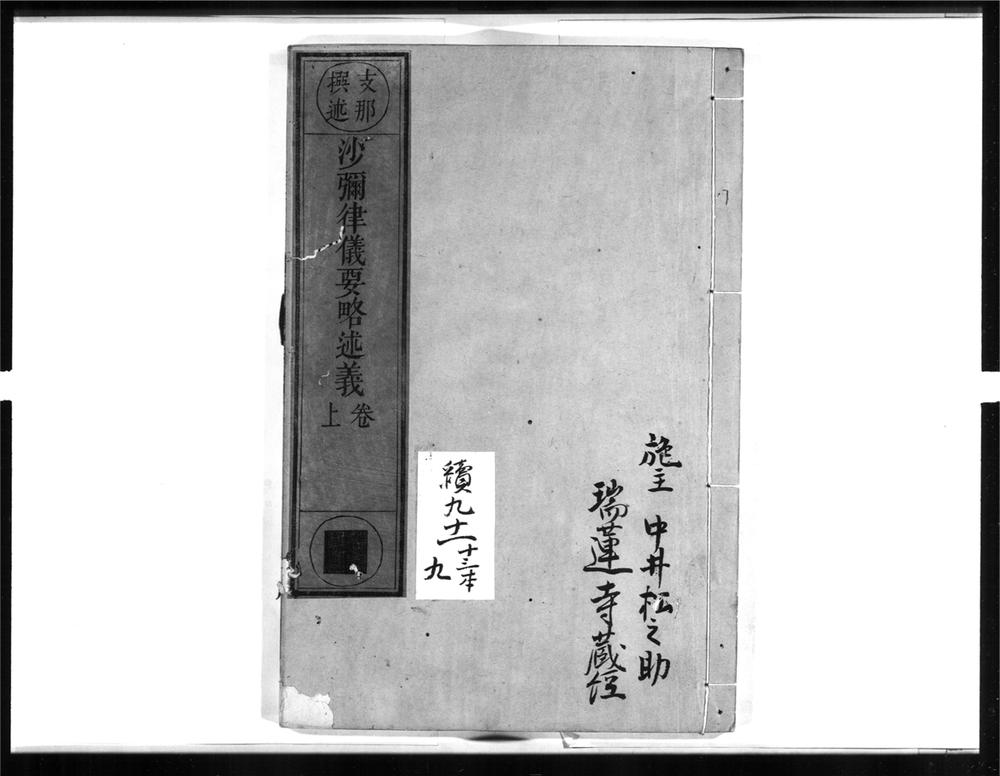 施主 中井松之助
瑞蓮寺蔵経
支那
撰述
沙彌律儀要略述義
卷
上
續九十一
十三本
九